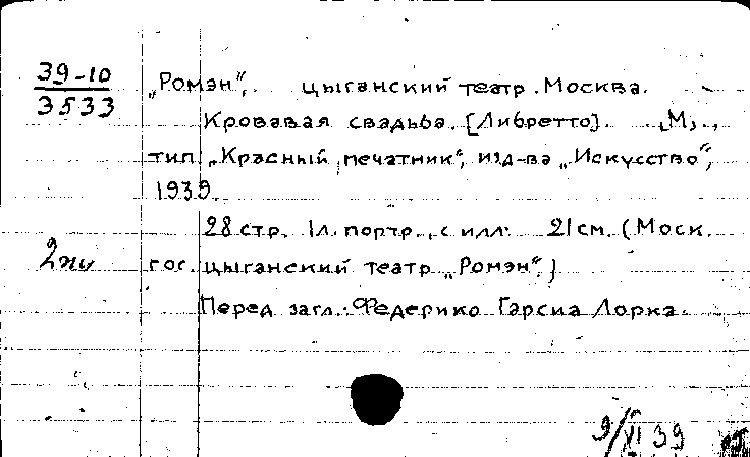 39-10
3533
„Ромэн“, цыганский театр. Москва.
Кровавая свадьба. [Либретто]. М.,
тип. „Красный печатник“, изд-ва „Искусство“,
1939.
28 стр. 1л. портр. с илл. 21 см. (Моск.
гос. цыганский театр „Ромэн“.)
Перед загл.: Федерико Гарсиа Лорка.
9/XI 39